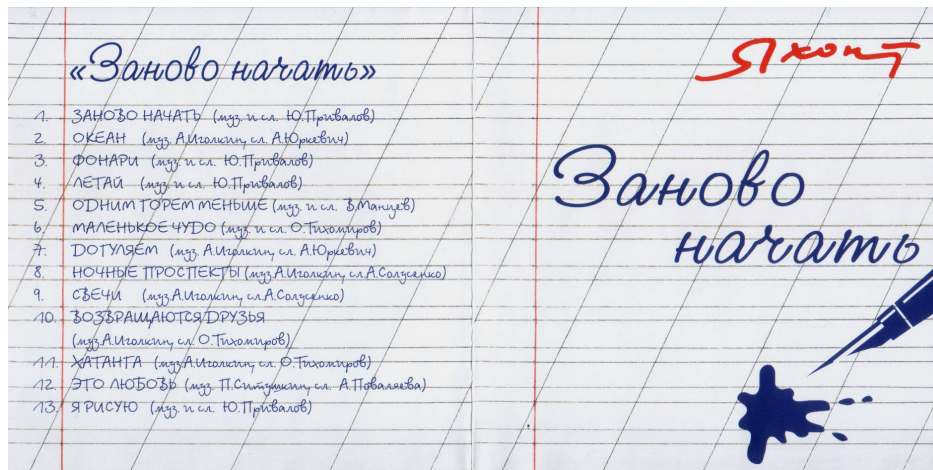 «Заново начать»
1. ЗАНОВО НАЧАТЬ (муз. и сл. Ю.Привалов)
2. ОКЕАН (муз. А.Иголкин, сл. А.Юркевич)
3. ФОНАРИ (муз. и сл. Ю.Привалов)
4. ЛЕТАЙ (муз. и сл. Ю.Привалов)
5. ОДНИМ ГОРЕМ МЕНЬШЕ (муз. и сл. В.Манцев)
6. МАЛЕНЬКОЕ ЧУДО (муз. и сл. О.Тихомиров)
7. ДОГУЛЯЕМ (муз. А.Иголкин, сл. А.Юркевич)
8. НОЧНЫЕ ПРОСПЕКТЫ (муз.А.Иголкин, сл.А.Солусенко)
9. СВЕЧИ (муз.А.Иголкин, сл.А.Солусенко)
10. ВОЗВРАЩАЮТСЯ ДРУЗЬЯ
(муз.А.Иголкин, сл. О.Тихомиров)
11. ХАТАНГА (муз.А.Иголкин, сл. О.Тихомиров)
12. ЭТО ЛЮБОВЬ (муз. П.Ситушкин, сл. А.Поваляева)
13. Я РИСУЮ (муз. и сл. Ю.Привалов)
Яхонт
Заново
начать